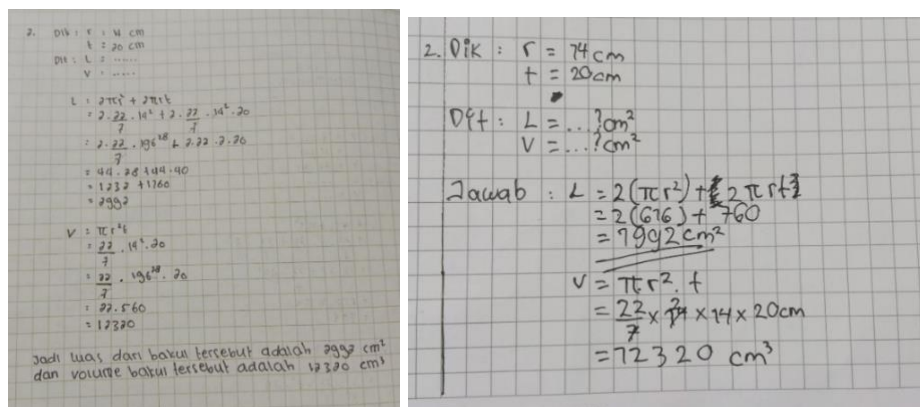 2. Dik : r : 14 cm
t = 20 cm
Dit : L = ......
V = ......
L = 2πr² + 2πrt
= 2 . 22/7 . 14² + 2 . 22/7 . 14² . 20
= 2 . 22/7 . 196²⁸ + 2.22 . 2 . 20
= 44 . 28 + 44 . 40
= 1232 + 1760
= 2992
V = πr²t
= 22/7 . 14² . 20
= 22/7 . 196²⁸ . 20
= 22 . 560
= 12320
Jadi luas dari bakul tersebut adalah 2992 cm²
dan volume bakul tersebut adalah 12320 cm³
2. Dik : r = 14 cm
t = 20 cm
Dit : L = ...? cm²
V = ...? cm²
Jawab : L = 2(πr²) + 2πrt
= 2(616) + 760
= 1992 cm²
V = πr² . t
= 22/7 × 14 × 14 × 20 cm
= 12320 cm³